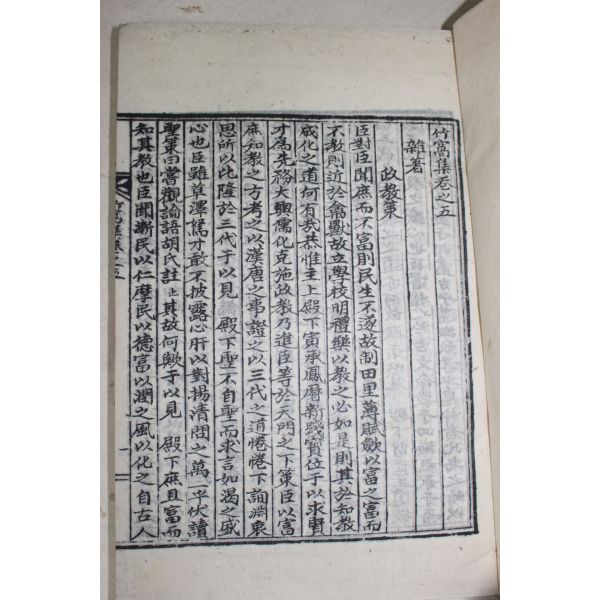 竹窩集卷之五
雜著
政教策
臣對臣聞庶而不富則民生不遂故制田里薄賦斂以富之富而
不教則近於禽獸故立學校明禮樂以教之必如是則其於知教
成化之道何有哉恭惟主上殿下寅承鳳曆新踐寶位于以求賢
才爲先務大興儒化克施政教乃進臣等於天門之下策臣以富
庶知教之方考之以漢唐之事證之以三代之道惓惓下詢淵衷
思所以比隆於三代于以見 殿下聖不自聖而求言如渴之盛
心也臣雖草澤駑才敢不披露心肝以對揚清問之萬一乎伏讀
聖策曰嘗觀論語胡氏註止其故何歟于以見 殿下庶且富而
知其教也臣聞漸民以仁摩民以德富以潤之風以化之自古人
竹窩集卷之五
一